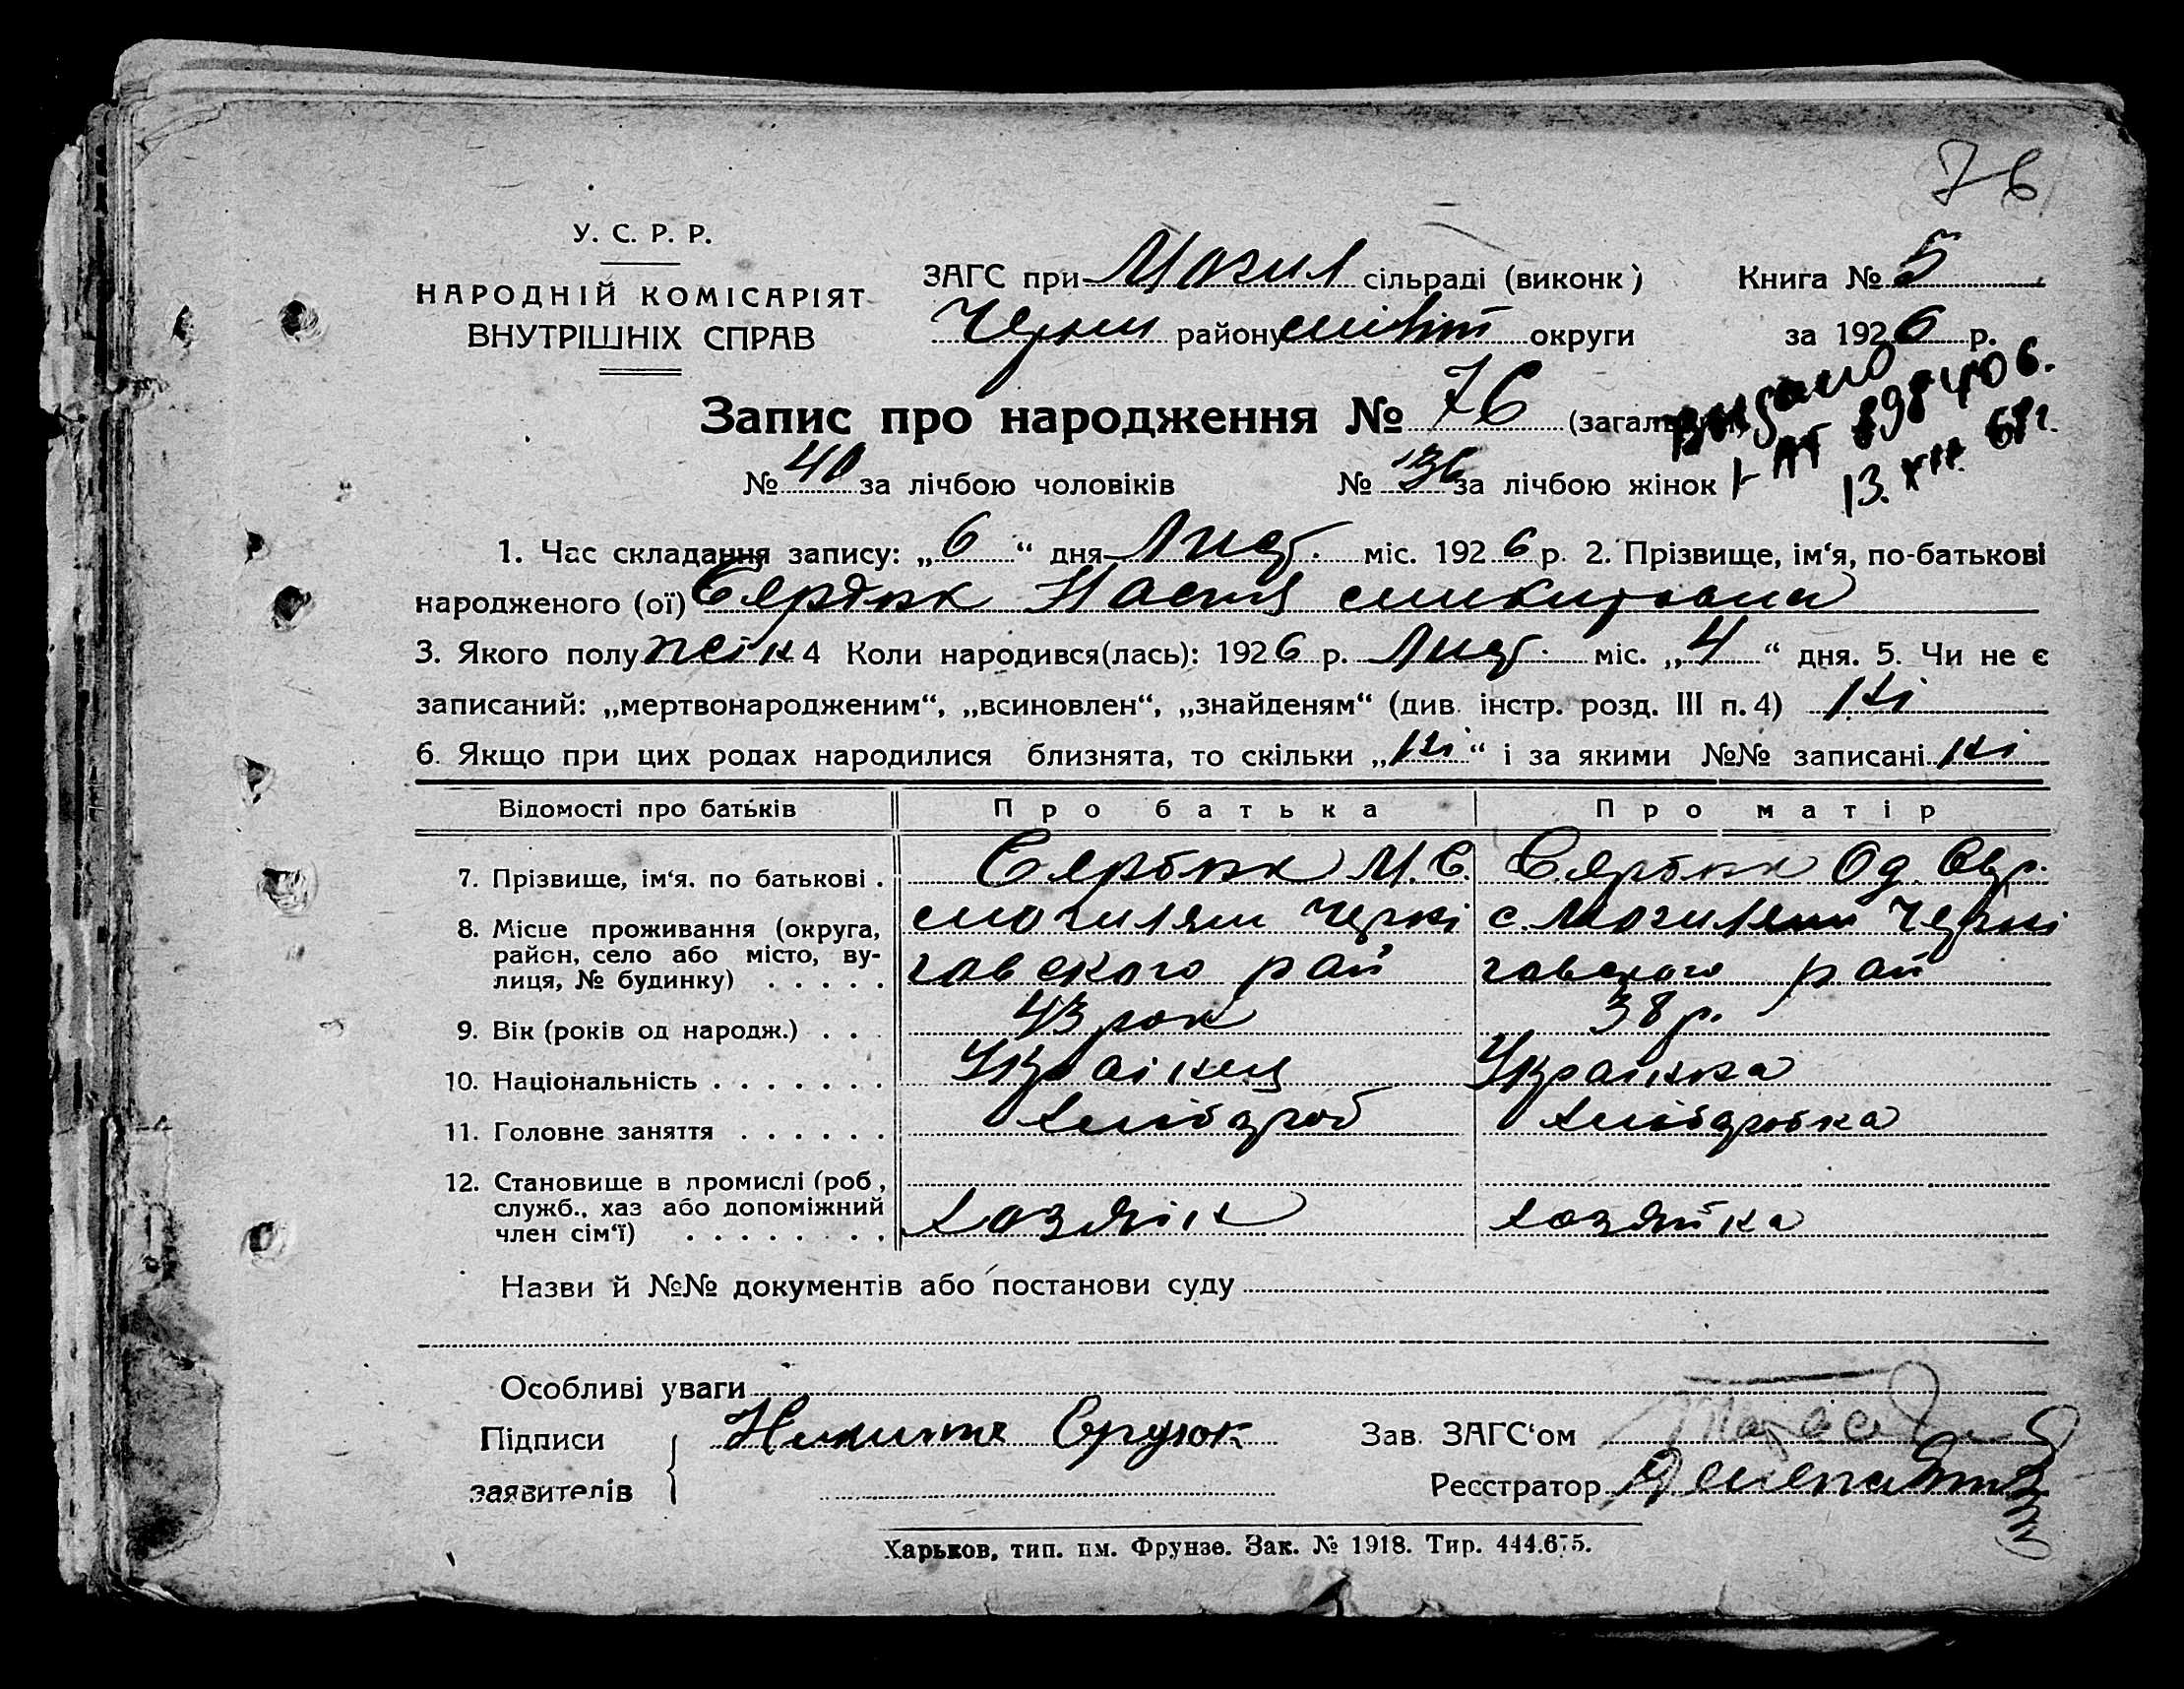 76
У. С. Р. Р.
НАРОДНІЙ КОМІСАРІЯТ
ВНУТРІШНІХ СПРАВ
ЗАГС при Могил сільраді (виконк)
Книга № 5
Черни району округи
за 1926 р.
Запис про народження № 76 (загаль
видано
898406.
13. XII 68г.
№ 40 за лічбою чоловіків № 36 за лічбою жінок
1. Час складання запису: „6“ дня Лист. міс. 1926 р. 2. Прізвище, ім‘я, по-батькові
народженого (ої) Сердюк Настя
3. Якого полу жін 4 Коли народився(лась): 1926 р. Лист. міс. „4“ дня. 5. Чи не є
записаний: „мертвонародженим“, „всиновлен“, „знайденям“ (див. інстр. розд. III п. 4) ні
6. Якщо при цих родах народилися близнята, то скільки „ні“ і за якими №№ записані ні
Відомості про батьків Про батька Про матір
7. Прізвище, ім‘я. по батькові . Сердюк М. С. Сердюк Од.
8. Місце проживання (округа, район, село або місто, вулиця, № будинку) . . . . .
смогиляни Черні с. Могиляни Черні
говского рай говского рай
9. Вік (років од народж.) . . . 43 рок 38 р.
10. Національність . . . . . . . Українец Украінка
11. Головне заняття . . . . . . Хлібороб Хліборобка
12. Становище в промислі (роб, служб., хаз або допоміжний член сім‘ї) . . . . . . . .
Хозяін хозяйка
Назви й №№ документів або постанови суду
Особливі уваги
Підписи
заявителів
Никита Срдюк
Зав. ЗАГС‘ом
Реєстратор
Харьков, тип. им. Фрунзе. Зак. № 1918. Тир. 444.675.